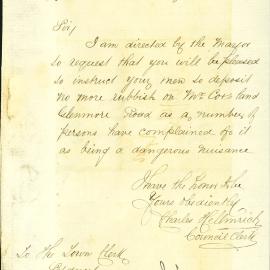 Sir,
I am directed by the Mayor
to request that you will be pleased
to instruct your men to deposit
no more rubbish on Mr Cox's land
Glenmore Road as a number of
persons have complained of it
as being a dangerous nuisance
I have the honor to be
Yours obediently
Charles Hellmrich
Council Clerk
To The Town Clerk